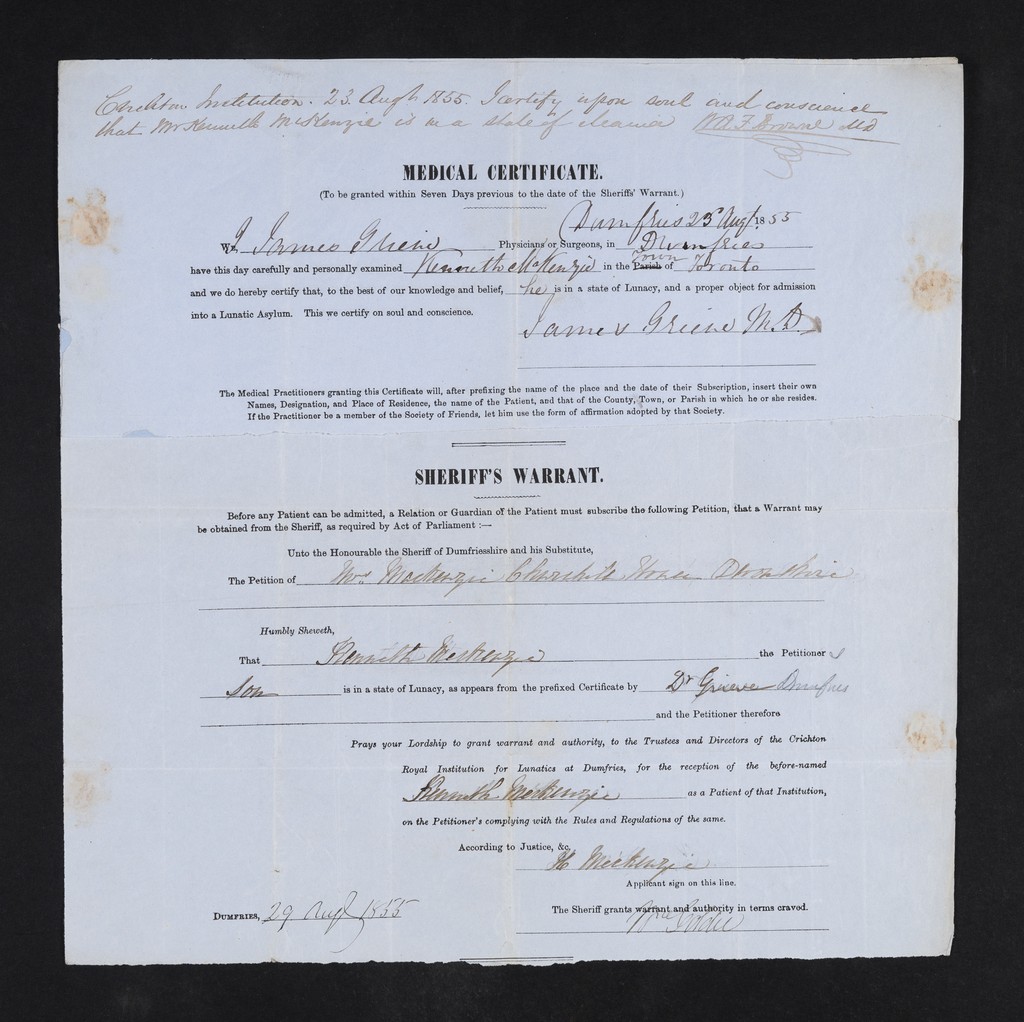 Crichton Institution. 23 Augt 1855. I certify upon soul and conscience
that Mr Kenneth McKenzie is in a state of Mania W A F Browne MD
MEDICAL CERTIFICATE.
(To be granted within Seven Days previous to the date of the Sheriffs' Warrant.)
Dumfries 23 Augt 1855
We, I James Grieve Physicians or Surgeons, in Dumfries
have this day carefully and personally examined Kenneth McKenzie in the Parish Town of Toronto
and we do hereby certify that, to the best of our knowledge and belief, he is in a state of Lunacy, and a proper object for admission
into a Lunatic Asylum. This we certify on soul and conscience.
James Grieve M.D.
The Medical Practitioners granting this Certificate will, after prefixing the name of the place and the date of their Subscription, insert their own
Names, Designation, and Place of Residence, the name of the Patient, and that of the County, Town, or Parish in which he or she resides.
If the Practitioner be a member of the Society of Friends, let him use the form of affirmation adopted by that Society.
SHERIFF'S WARRANT.
Before any Patient can be admitted, a Relation or Guardian of the Patient must subscribe the following Petition, that a Warrant may
be obtained from the Sheriff, as required by Act of Parliament :—
Unto the Honourable the Sheriff of Dumfriesshire and his Substitute,
The Petition of Mrs Mackenzie
Humbly Sheweth,
That Kenneth McKenzie the Petitioners
son is in a state of Lunacy, as appears from the prefixed Certificate by Dr Grieve Dumfries
and the Petitioner therefore
Prays your Lordship to grant warrant and authority, to the Trustees and Directors of the Crichton
Royal Institution for Lunatics at Dumfries, for the reception of the before-named
Kenneth McKenzie as a Patient of that Institution,
on the Petitioner's complying with the Rules and Regulations of the same.
According to Justice, &c.
H McKenzie
Applicant sign on this line.
DUMFRIES, 29 Augt 1855
The Sheriff grants warrant and authority in terms craved.